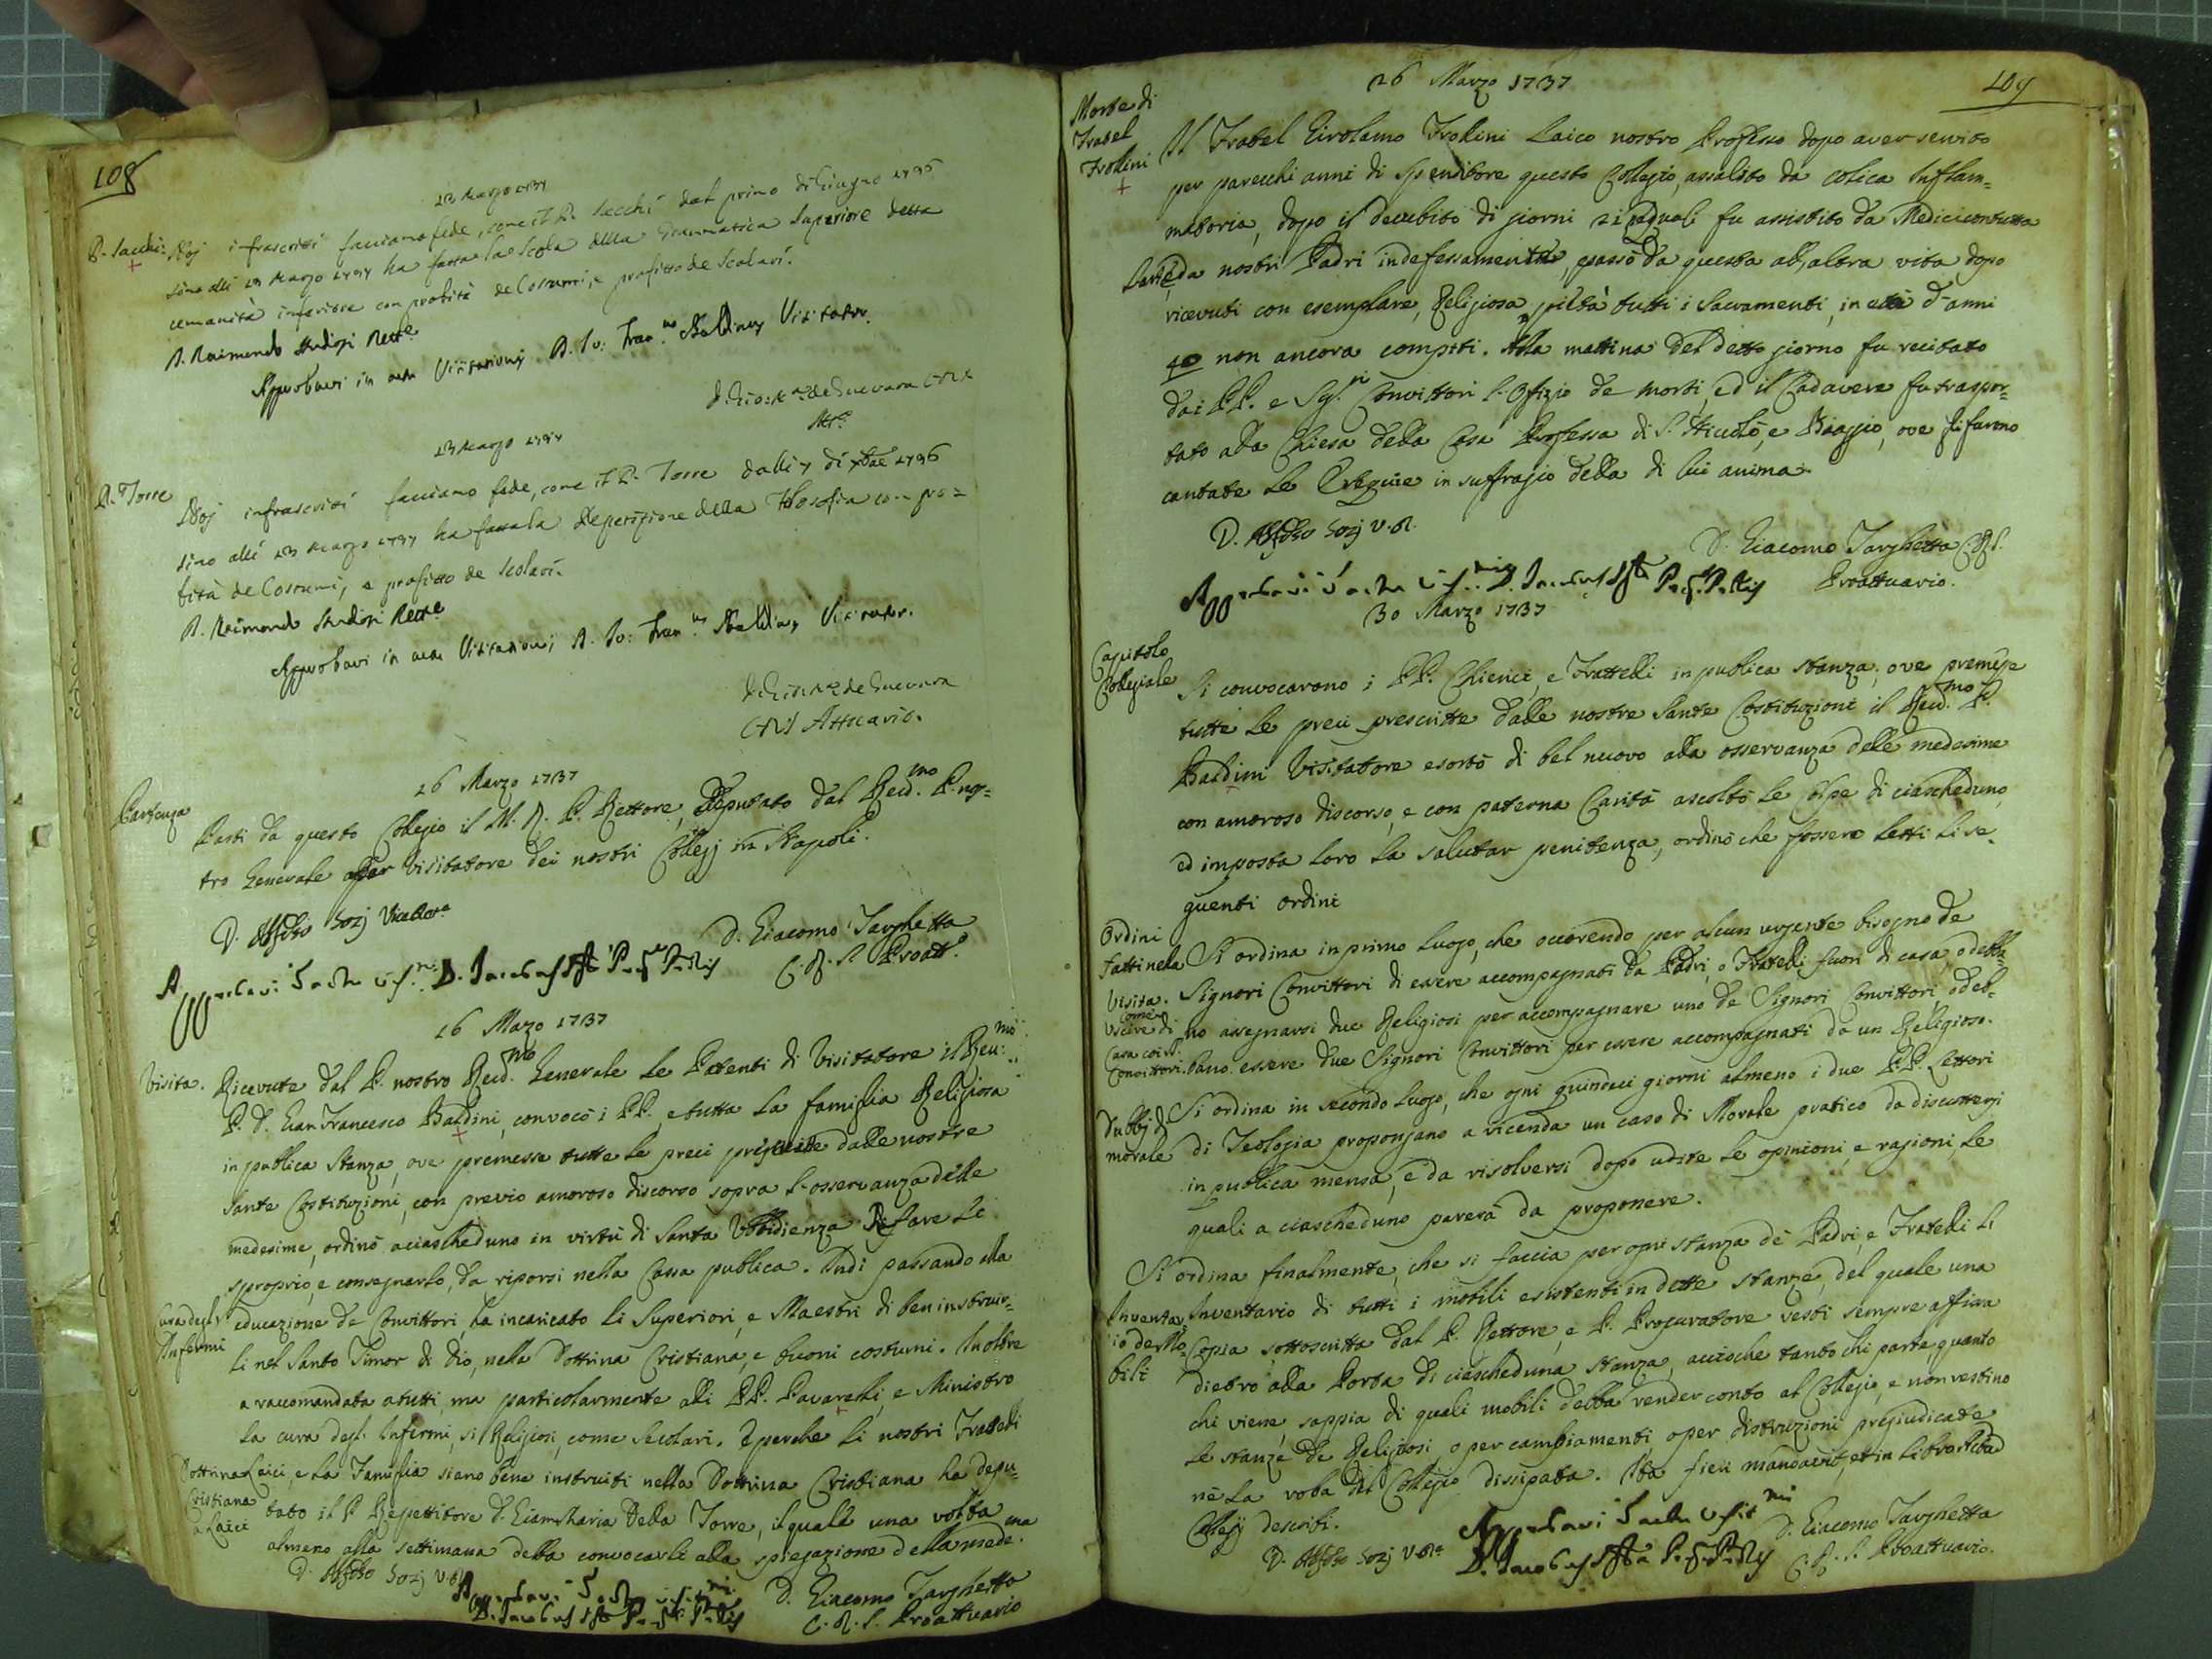 108
23 Marzo 1737
P. Sacchi. Noj infrascritti facciamo fede, come il P. Sacchi dal primo di Giugno 1736
sino alli 23 Marzo 1737 ha fatta la Scola della Grammatica Superiore detta
umanità inferiore con probità de Costumi, e profitto de Scolari.
D. Raimondo Studiosi Rett.e
Approbavi in actu Visitationis D. Jo: Fran.us Baldinus Visitator.
de Guevara CRS
Att.o
23 Marzo 1737
P. Torre
Noj infrascritti facciamo fede, come il P. Torre dalli 7 di xbre 1736
sino alli 23 Marzo 1737 ha fatta la Repetizione della Filosofia con pro=
bità de Costumi, e profitto de Scolari.
D. Raimondo Studiosi Rett.e
Approbavi in actu Visitationis D. Jo: Fran.us Baldinus Visitator.
de Guevara
CRS Attuario.
26 Marzo 1737
Partenza
Partì da questo Collegio il M. R. P. Rettore, Deputato dal Rev.mo P. nos=
tro Generale Visitatore dei nostri Collegj in Napoli.
D. Sozj Vicerett.e
D. Giacomo Targhetta
C. R. S. Proatt.o
26 Mazo 1737
Visita. Ricevute dal P. nostro Rev.mo Generale le Patenti di Visitatore il Rev:mo
P. D. Gian Francesco Baldini, convocò i PP. e tutta la famiglia Religiosa
in publica Stanza, ove premesse tutte le preci prescritte dalle nostre
Sante Costituzioni, con previo amoroso discorso sopra l'osservanza delle
medesime, ordinò a ciascheduno in virtù di Santa Ubbidienza di fare lo
sproprio, e consegnarlo, da riporsi nella Cassa publica. Indi passando alla
Cura degl' educazione de Convittori, ha incaricato li Superiori, e Maestri di ben instruir=
Infermi li nel Santo Timor di Dio, nella Dottrina Cristiana, e buoni costumi. Inoltre
a raccomandata a tutti, ma particolarmente alli PP. Pavarelli, e Ministro
la cura degl' Infermi, sì Religiosi, come Secolari. E perche li nostri Fratelli
Dottrina Laici, e la Famiglia siano bene instruiti nella Dottrina Cristiana ha depu=
Cristiana tato il P. Repettitore D. Gian Maria Della Torre, il quale una volta
a Laici almeno alla settimana debba convocarli alla spiegazione della mede.ma
D. Sozj V.R.
D. Giacomo Targhetta
C. R. S. Proattuario
109
26 Marzo 1737
Morte di
Fratel
Frolini
Il Fratel Girolamo Frolini Laico nostro Professo dopo aver servito
per parecchi anni di Spenditore questo Collegio, assalito da Colica Inflam=
matoria, dopo il decubito di giorni 21 ne' quali fu assistito da Medici con tutta
l'arte, e da nostri Padri indefessamente, passò da questa all'altra vita dopo
ricevuti con esemplare, Religiosa pietà tutti i Sacramenti, in età d'anni
40 non ancora compiti. Alla mattina del detto giorno fu recitato
dai PP. e Sig.ri Convittori l'Ofizio de morti, ed il Cadavere fu traspor=
tato alla Chiesa della Casa Professa di S. Niccolò, e Biaggio, ove gli furono
cantate le Esequie in suffragio della di lui anima.
D. Sozj V.R.
D. Giacomo Targhetta C.R.S.
Proattuario.
30 Marzo 1737
Capitolo
Collegiale
Si convocarono i PP. Chierici, e Frattelli in publica stanza, ove premesse
tutte le preci prescritte dalle nostre Sante Costituzioni il Rev.mo P.
Baldini Visitatore esortò di bel nuovo alla osservanza delle medesime
con amoroso discorso, e con paterna Carità ascoltò le Colpe di ciascheduno,
ed imposta loro la salutar penitenza, ordinò che fossero letti li se=
guenti ordini
Ordini
fatti nela
Visita.
Come
uscire di
Casa coi SS.
Convittori.
Si ordina in primo luogo, che occorrendo per alcun urgente bisogno de
Signori Convittori di essere accompagnati da Padri, o Fratelli fuori di casa, o debba=
no assegnarsi due Religiosi per accompagnare uno de Signori Convittori, o deb=
bano essere due Signori Convittori per essere accompagnati da un Religioso.
Dubbj di
morale
Si ordina in secondo luogo, che ogni quindeci giorni almeno i due P.P. Lettori
di Teologia propongano a vicenda un caso di Morale pratico da discutersi
in publica mensa, e da risolversi dopo udite le opinioni, e ragioni, le
quali a ciascheduno parerà da proponere.
Si ordina finalmente, che si faccia per ogni stanza de' Padri, e Fratelli l'
Inventar= Inventario di tutti i mobili esistenti in dette stanze, del quale una
io de Mo= Copia sottoscritta dal P. Rettore, e P. Procuratore resti sempre affissa
bili dietro alla Porta di ciascheduna stanza, accioche tanto chi parte, quanto
chi viene, sappia di quali mobili debba render conto al Collegio, e non restino
le stanze de Religiosi o per cambiamenti, o per distruzioni pregiudicate
nè la roba del Collegio dissipata. Ita fieri mandavit, et in libro Actor
Collegij describi.
D. Sozj V.R.e
D. Giacomo Targhetta
C. R. S. Proattuario.